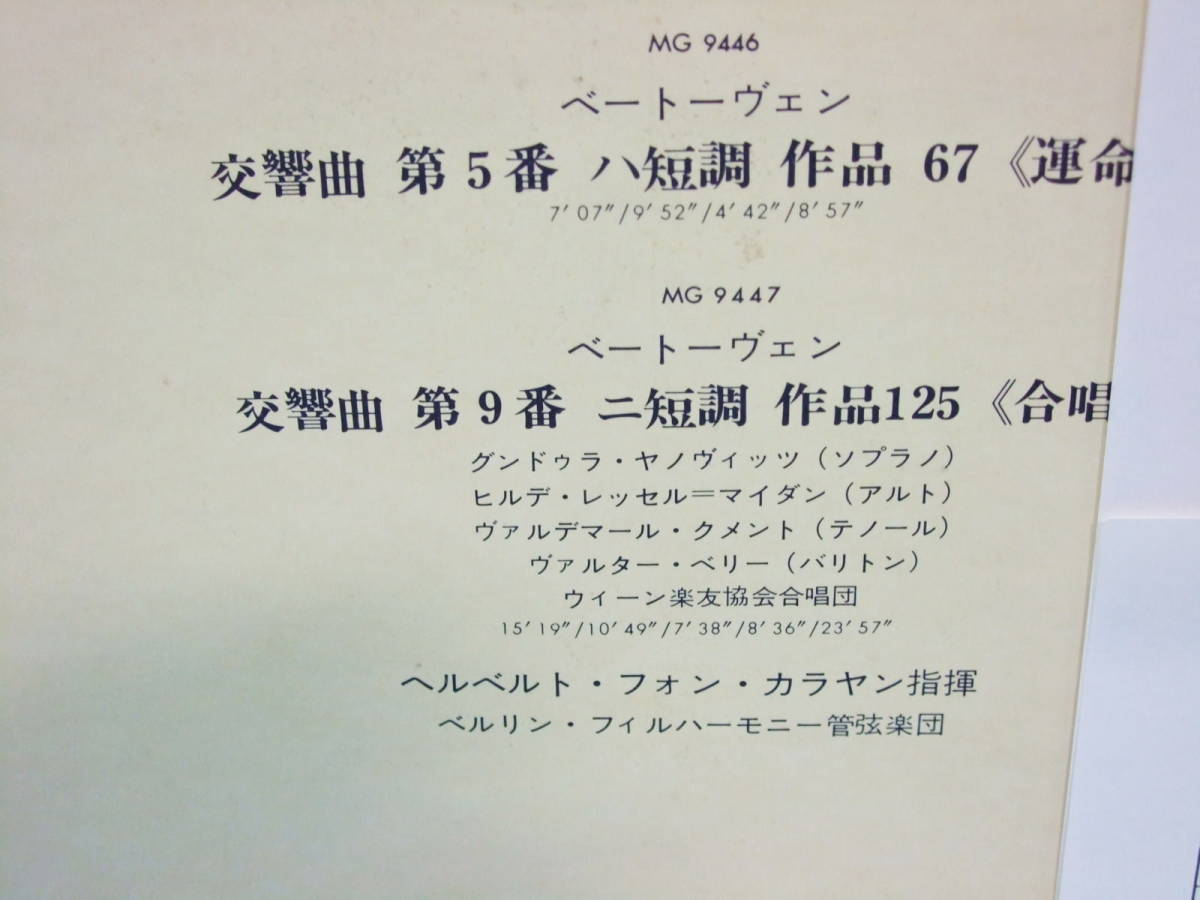 MG 9446
ベートーヴェン
交響曲 第5番 ハ短調 作品 67《運命
7′07″/9′52″/4′42″/8′57″
MG 9447
ベートーヴェン
交響曲 第9番 ニ短調 作品125《合唱
グンドゥラ・ヤノヴィッツ（ソプラノ）
ヒルデ・レッセル＝マイダン（アルト）
ヴァルデマール・クメント（テノール）
ヴァルター・ベリー（バリトン）
ウィーン楽友協会合唱団
15′19″/10′49″/7′38″/8′36″/23′57″
ヘルベルト・フォン・カラヤン指揮
ベルリン・フィルハーモニー管弦楽団